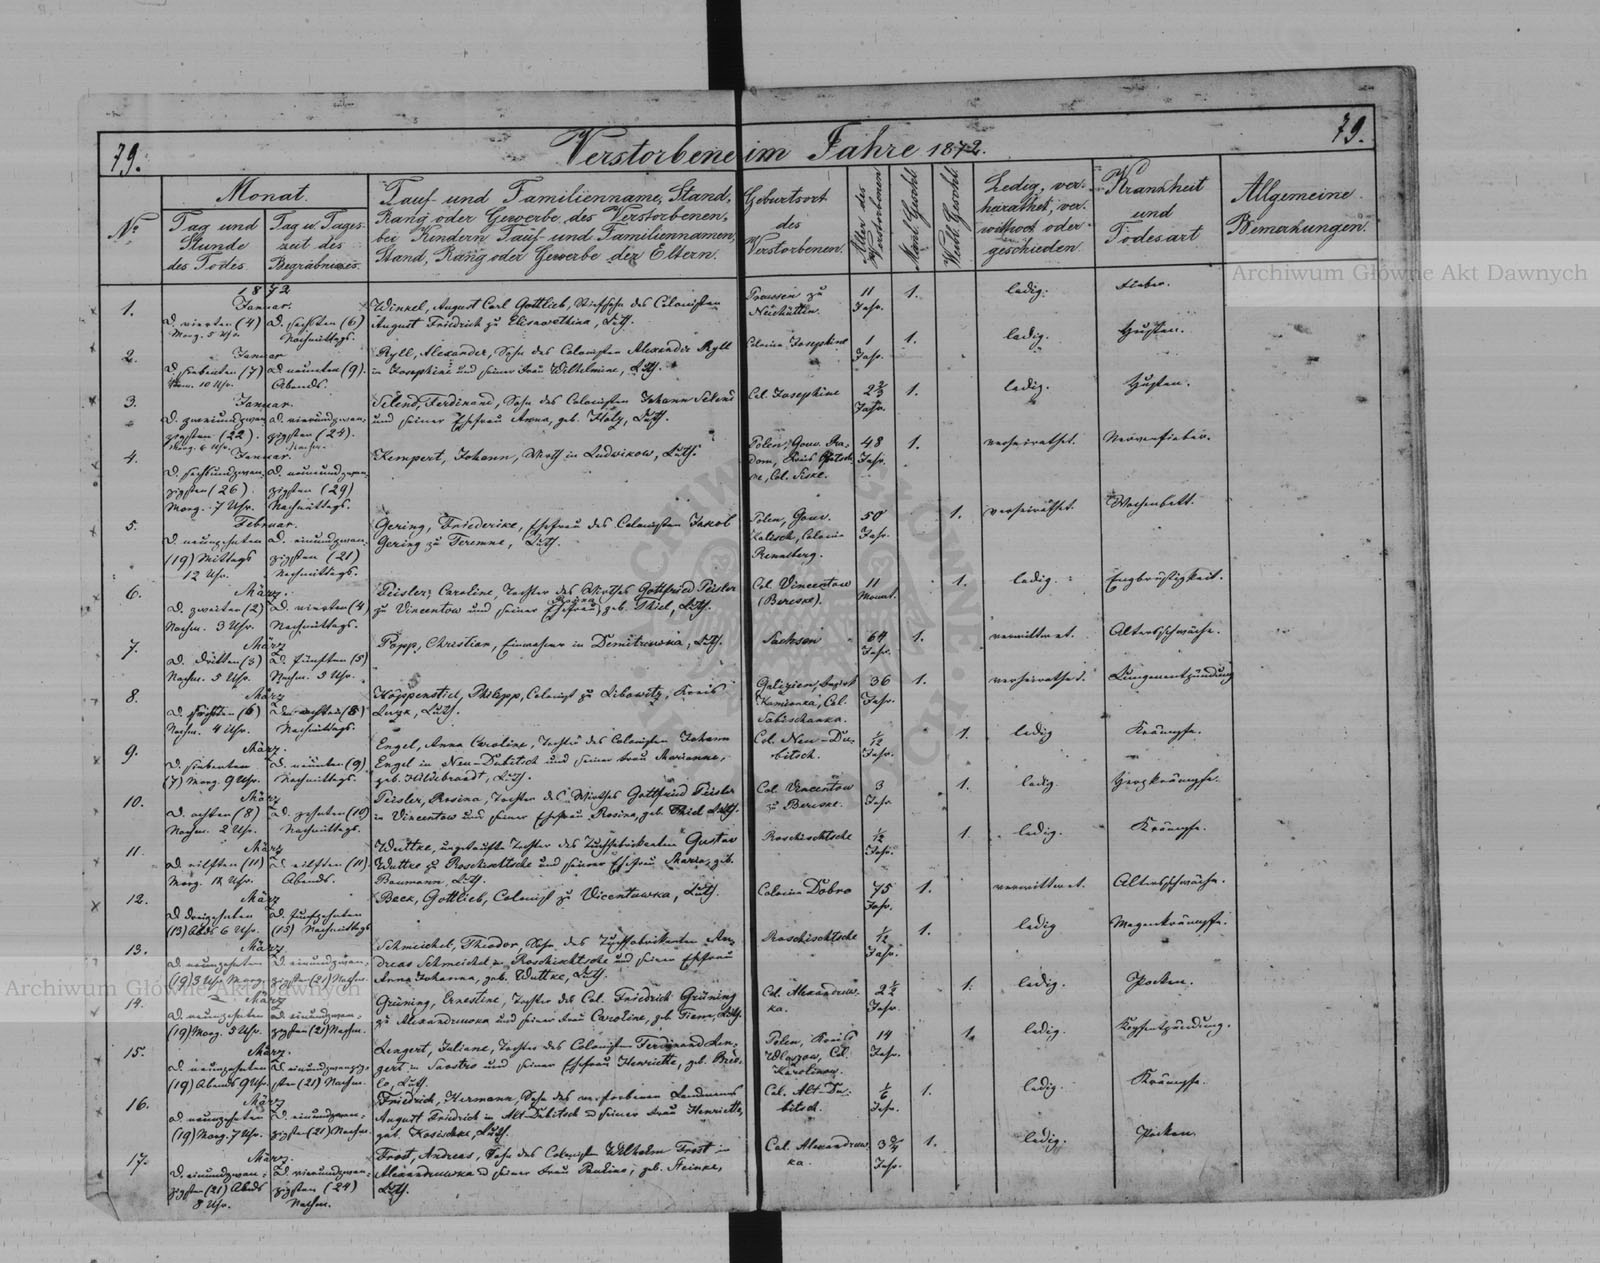 79.
Verstorbene im Jahre 1872.
79.
No
Monat.
Tag und
Stunde
des Todes.
Tag u. Tages-
zeit des
Begräbnisses.
Tauf- und Familienname, Stand,
Rang oder Gewerbe des Verstorbenen,
bei Kindern Tauf- und Familiennamen,
Stand, Rang oder Gewerbe der Eltern.
Geburtsort
des
Verstorbenen.
Alter des
Verstorbenen
Mänl. Geschl.
Weibl. Geschl.
Ledig, ver-
heirathet, ver-
wittwet oder
geschieden.
Krankheit
und
Todesart
Allgemeine
Bemerkungen.
1872
1.
Januar.
D. vierten (4)
Morg. 5 Uhr
D. sechsten (6)
Nachmittags.
Winkel, August Carl Gottlieb, Stiefsohn des Colonisten
August Friedrich zu Elisawethina, Luth.
Preussen zu
Neuhütten.
11
Jahr.
1.
ledig.
Fieber.
2.
Januar
D. siebenten (7)
Vorm. 10 Uhr.
D. neunten (9).
Abends.
Ryll, Alexander, Sohn des Colonisten Alexander Ryll
in Josephine und seiner Frau Wilhelmine, Luth.
Colonie Josephine
1
Jahr.
1.
ledig.
Husten.
3.
Januar.
D. zweiundzwan-
zigsten (22).
Morg. 6 Uhr.
D. vierundzwan-
zigsten (24).
Selend, Ferdinand, Sohn des Colonisten Johann Selend
und seiner Ehefrau Anna, geb. Holz, Luth.
Col. Josephine
Jahr.
1.
ledig.
Husten.
4.
Januar.
D. sechsundzwan-
zigsten (26).
Morg. 7 Uhr.
D. neunundzwan-
zigsten (29)
Nachmittags.
Kempert, Johann, Wirth in Ludwikow, Luth.
Polen, Gouv. Ra-
dom, Kreis
Col.
48
Jahr.
1.
verheirathet.
Nervenfieber.
5.
Februar.
D. neunzehnten
(19) Mittags
12 Uhr.
D. einundzwan-
zigsten (21)
Nachmittags.
Gering, Friederike, Ehefrau des Colonisten Jakob
Gering zu Teremne, Luth.
Polen, Gouv.
Kalisch, Colonie
50
Jahr.
1.
verheirathet.
Wochenbett.
6.
März.
D. zweiten (2)
Nachm. 3 Uhr.
D. vierten (4)
Nachmittags.
Peisler, Caroline, Tochter des Wirthes Gottfried Peisler
zu Vincentow und seiner Ehefrau Rosina, geb. Thiel, Luth.
Col. Vincentow
(Bereske).
11
Monat.
1.
ledig.
Engbrüstigkeit.
7.
März
D. dritten (3)
Nachm. 5 Uhr.
D. fünften (5)
Nachm. 5 Uhr.
Popp, Christian, Einwohner in Demitrowka, Luth.
Sachsen
64
Jahr.
1.
verwittwet.
Altersschwäche.
8.
März
D. sechsten (6)
Nachm. 4 Uhr.
D. achten (8)
Nachmittags.
Köppenstiel, Philipp, Colonist zu Libowitz, Kreis
Luzk, Luth.
Galizien, Bezirk
Kamionka, Col.
36
Jahr.
1.
verheirathet.
Lungenentzündung
9.
März.
D. siebenten
(7) Morg. 9 Uhr.
D. neunten (9)
Nachmittags.
Engel, Anna Caroline, Tochter des Colonisten Johann
Engel in Neu-Dubitsch und seiner Frau Marianne,
geb. Hildebrandt, Luth.
Col. Neu-Du-
bitsch.
1/12
Jahr.
1.
ledig
Krämpfe.
10.
März
D. achten (8)
Nachm. 2 Uhr.
D. zehnten (10)
Nachmittags.
Peisler, Rosina, Tochter des Wirthes Gottfried Peisler
in Vincentow und seiner Ehefrau Rosina, geb. Thiel Luth.
Col. Vincentow
zu Bereske.
3
Jahr
1.
ledig.
Herzkrämpfe.
11.
März
D. eilften (11)
Morg. 12 Uhr.
D. eilften (11)
Abends.
Wuttke, ungetaufte Tochter des Tuchfabrikanten Gustav
Wuttke zu Roschischtsche und seiner Ehefrau Maria, geb.
Baumann, Luth.
Roschischtsche
1/12
Jahr.
1.
ledig.
Krämpfe.
12.
März
D. dreizehnten
(13) Abds 6 Uhr.
D. fünfzehnten
(15) Nachmittags
Beck, Gottlieb, Colonist zu Vicentowka, Luth.
Colonie Dobro
75
Jahr.
1.
verwittwet.
Altersschwäche.
13.
März
D. neunzehnten
(19) 3 Uhr Morg.
D. einundzwan-
zigsten (21) Nachm.
Schmeichel, Theodor, Sohn des Tuchfabrikanten An-
dreas Schmeichel zu Roschischtsche und seiner Ehefrau
Anna Johanna, geb. Wuttke, Luth.
Roschischtsche
1/12
Jahr.
1.
ledig
Magenkrämpfe.
14.
März
D. neunzehnten
(19) Morg. 5 Uhr.
D. einundzwan-
zigsten (21) Nachm.
Grüning, Ernestine, Tochter des Col. Friedrich Grüning
zu Alexandruwka und seiner Frau Caroline, geb. Luth.
Col. Alexandruw-
ka.
2 1/2
Jahr.
1.
ledig.
Pocken.
15.
März.
D. neunzehnten
(19) Abends 9 Uhr
D. einundzwanzig-
sten (21) Nachm.
Lengert, Juliane, Tochter des Colonisten Ferdinand Len-
gert in und seiner Ehefrau Henriette, geb.
Luth.
Polen, Kreis
Col.
Karolinow.
14
Jahr.
1.
ledig.
Kopfentzündung.
16.
März
D. neunzehnten
(19) Morg. 7 Uhr.
D. einundzwan-
zigsten (21) Nachm.
Friedrich, Hermann, Sohn des verstorbenen Landwirths
August Friedrich in Alt-Dubitsch u seiner Frau Henriette,
geb. Kosischke, Luth.
Col. Alt-Du-
bitsch.
1/6
Jahr.
1.
ledig.
Krämpfe.
17.
März.
D. einundzwan-
zigsten (21) Abds
8 Uhr.
D. vierundzwan-
zigsten (24)
Nachm.
Frost, Andreas, Sohn des Colonisten Wilhelm Frost in
Alexandruwka u seiner Frau Pauline, geb. Steinke,
Luth.
Col. Alexandruw-
ka.
3 3/4
Jahr.
1.
ledig.
Pocken.
Archiwum Główne Akt Dawnych
Archiwum Główne Akt Dawnych